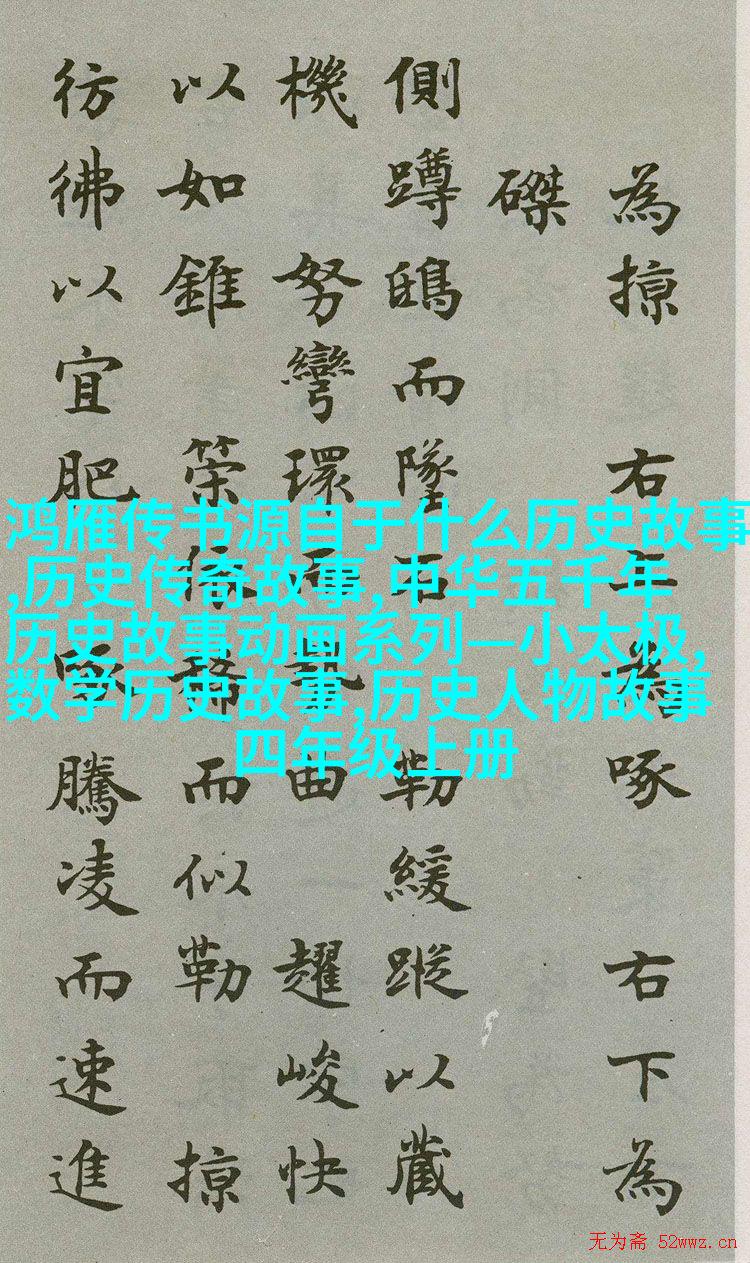 為掠右為啄右下為
磔
側蹲鴟而墜石勒緩蹤以藏
機努彎環曲趯峻快
以如錐策而似勒掠
彷彿以宜肥啄騰凌而速進
鸿雁传书源自于什么历史故事
,历史传奇故事,中华五千年
历史故事动画系列—小太极,
数学历史故事,历史人物故事
四年级上册
无为斋 52wwz.cn